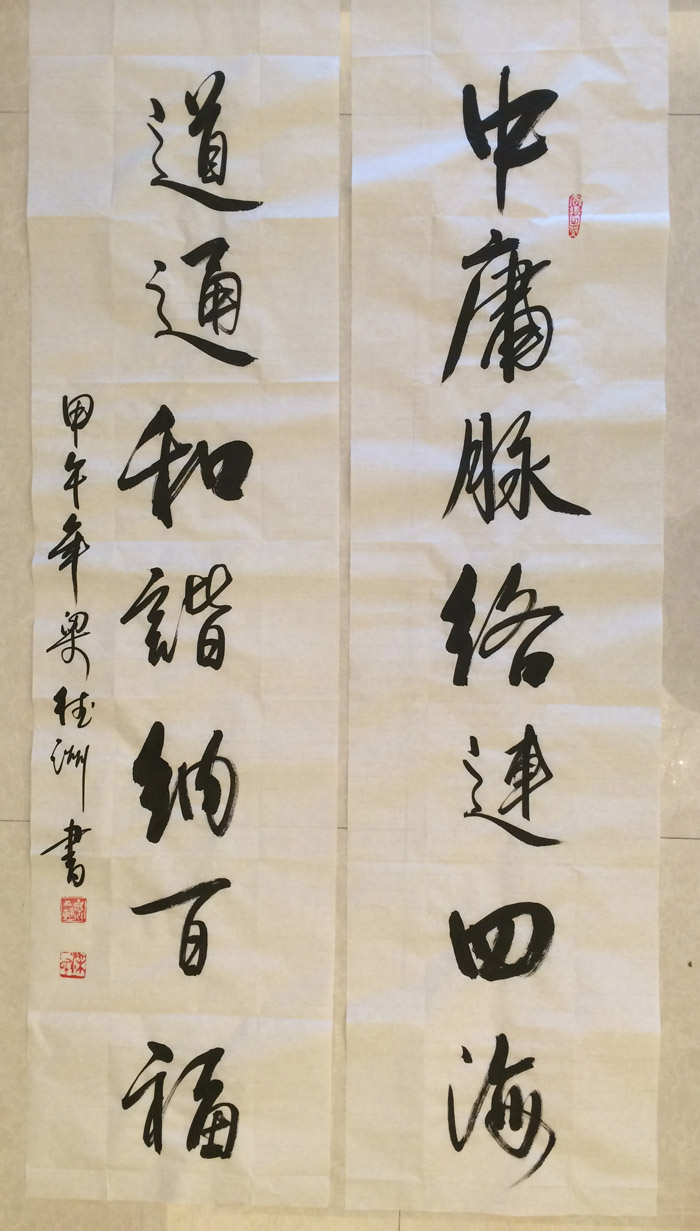 中庸脉络連四海
道通和諧納百福
甲午年梁桂洲書